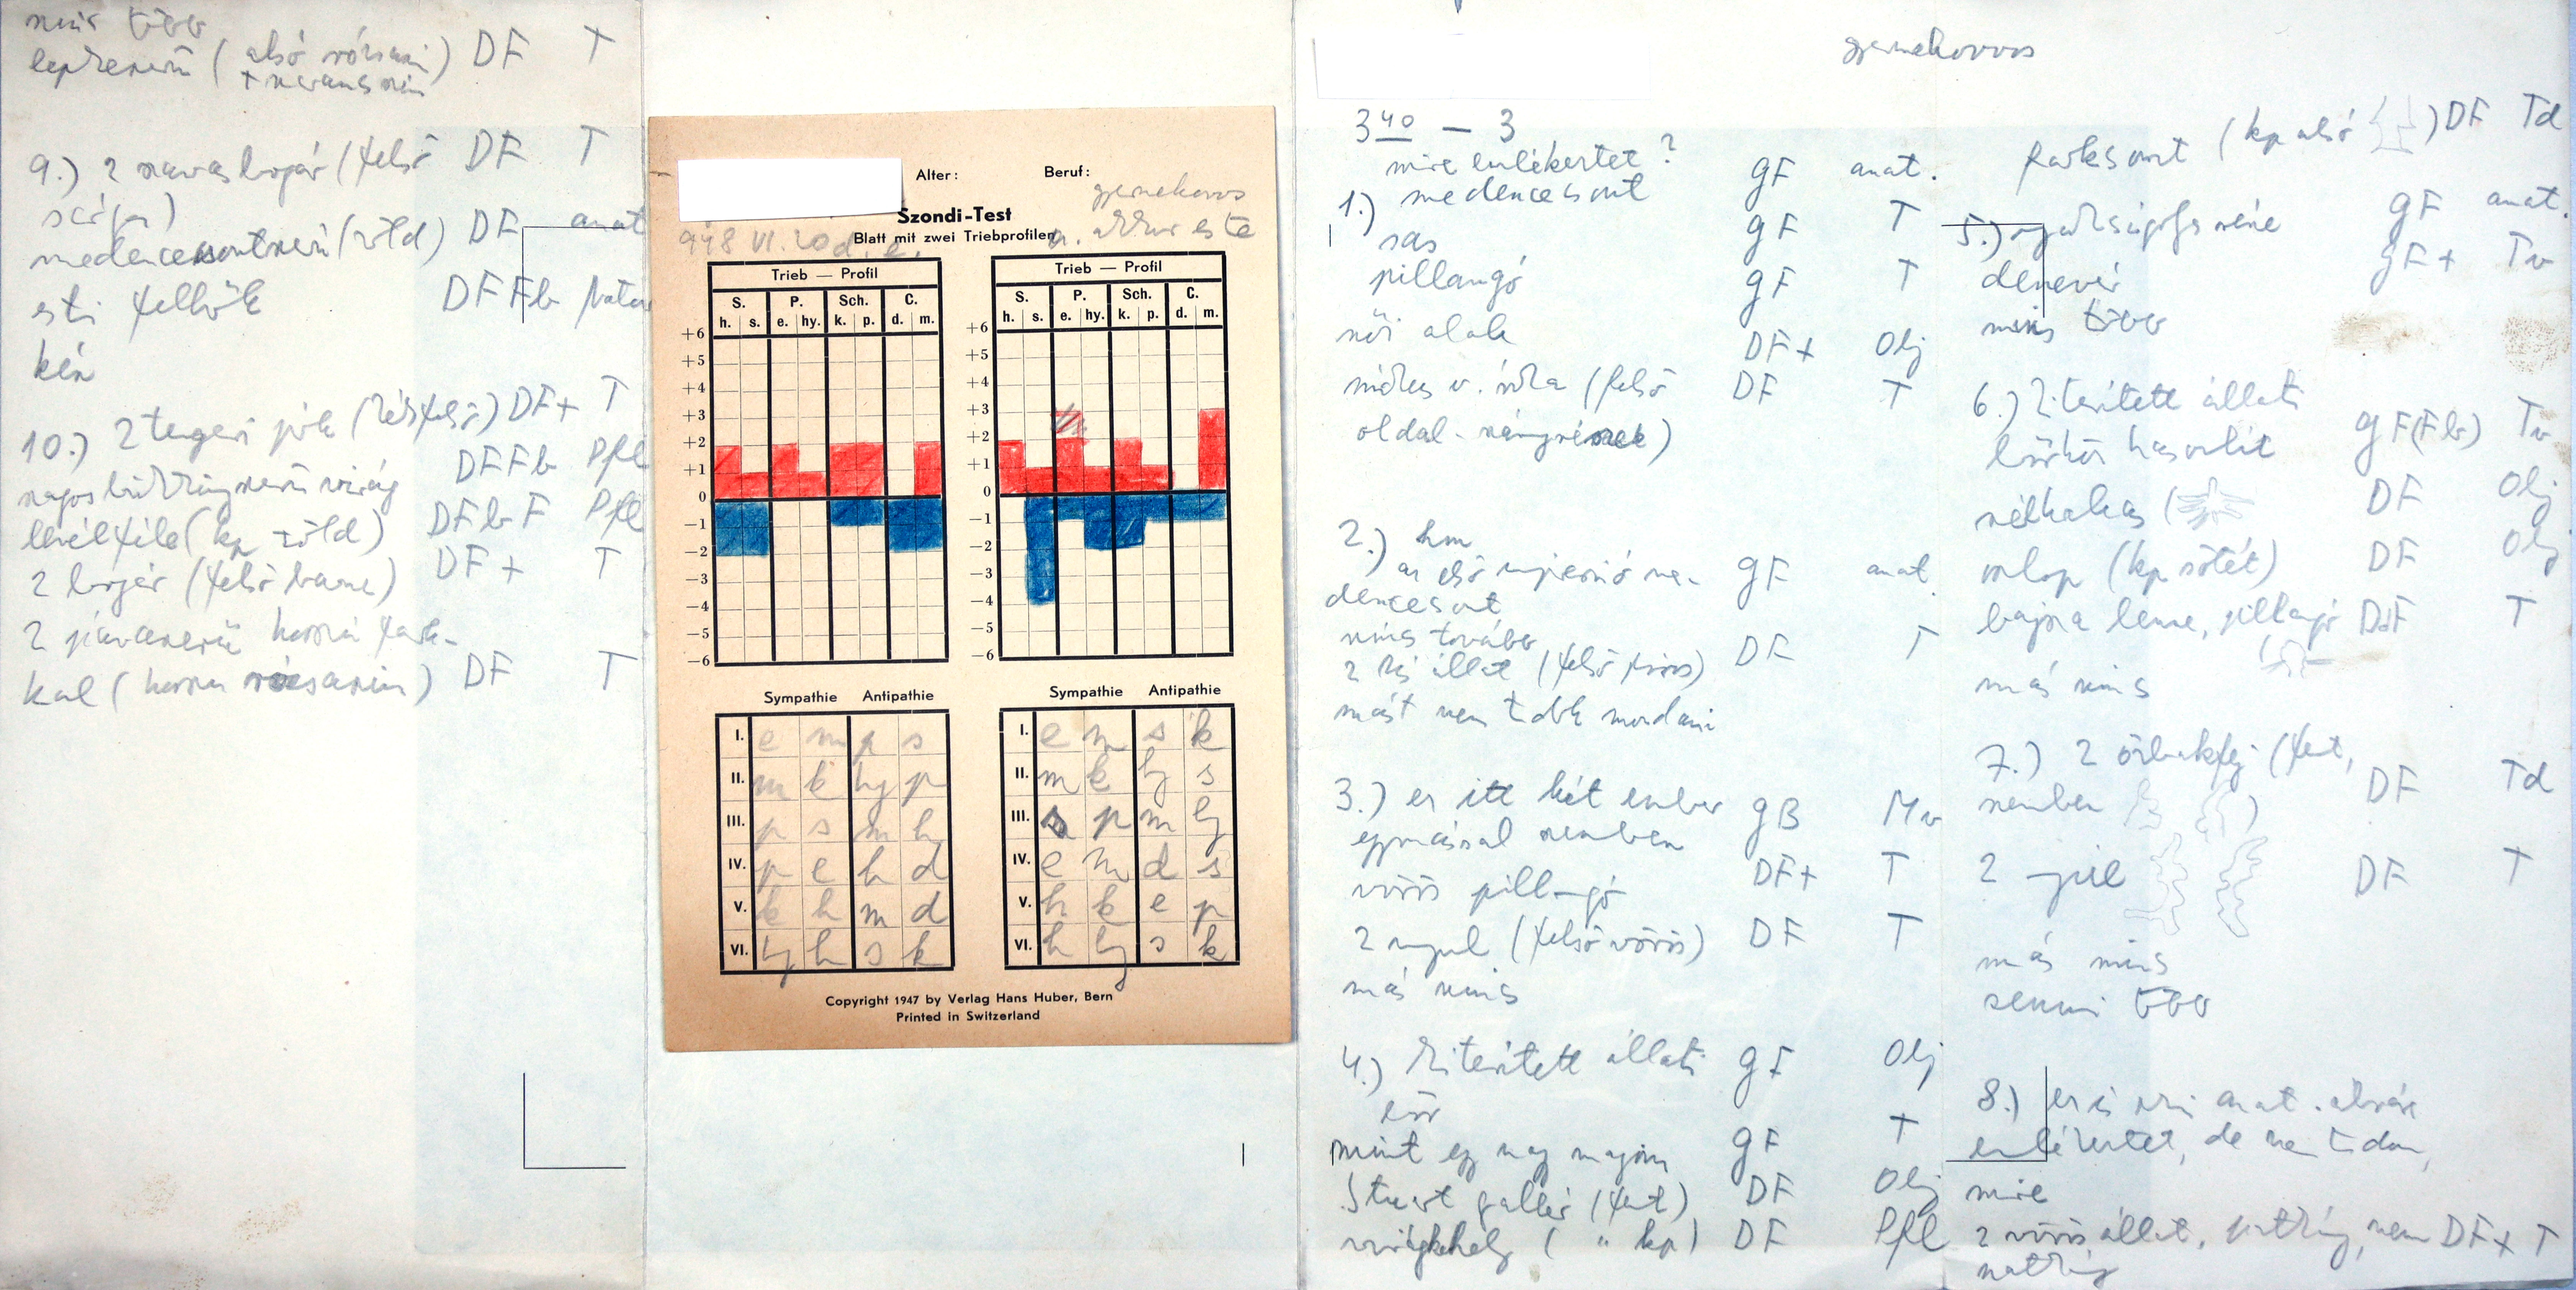 DF T
lepkeszerű ( alsó rózsaszín ) DF T
9.) 2 szarvasbogár (felső DF T
medencecsontszerű (zöld) DF anat
esti felhők DF Fb Natur
kén
10.) 2 tengeri pók (kék felső) DF+ T
DFFb Pfl
levélféle (kp zöld) DFbF Pfl
2 bogár (felső barna) DF+ T
2 hosszú fark-
kal (hosszú rózsaszín) DF T
Alter: Beruf:
gyermekorvos
Szondi-Test
948 VI. 20 d. e. u. a. este
Blatt mit zwei Triebprofilen
Trieb — Profil
S. P. Sch. C.
h. s. e. hy. k. p. d. m.
+6
+5
+4
+3
+2
+1
0
−1
−2
−3
−4
−5
−6
Sympathie Antipathie
I. e m p s
II. m k hy p
III. p s m h
IV. p e h d
V. k h m d
VI. hy h s k
Trieb — Profil
S. P. Sch. C.
h. s. e. hy. k. p. d. m.
+6
+5
+4
+3
+2
+1
0
−1
−2
−3
−4
−5
−6
Sympathie Antipathie
I. e m s k
II. m k hy s
III. s p m hy
IV. e m d s
V. h k e p
VI. h hy s k
Copyright 1947 by Verlag Hans Huber, Bern
Printed in Switzerland
gyermekorvos
3 40 — 3
mire emlékeztet?
1.) medencecsont gF anat.
sas gF T
pillangó gF T
női alak DF+ Obj
v. róka (felső DF T
oldal-
2.) hm
az első impresszió me- gF anat.
dencecsont
nincs tovább
2 kis állat (felső piros) DF T
mást nem tudok mondani
3.) ez itt két ember gB Mv
egymással szemben
vörös pillangó DF+ T
2 nyul (felső vörös) DF T
más nincs
4.) kiterített állati gF Obj
bőr
mint egy nagy majom gF T
Stuart gallér (fent) DF Obj
virágkehely ( " kp) DF Pfl
farkcsont (kp alsó ) DF Td
5.) gF anat.
denevér gF+ Tv
nincs több
6.) kiterített állati
bőrhöz hasonlít gF(Fb) Tv
szélkakas ( DF Obj
oszlop (kp sötét) DF Obj
bajsza lenne, pillangó DdF T
más nincs
7.) 2 őzbakfej (fent,
szemben ) DF Td
2 DF T
más nincs
semmi több
8.) ez is anat. ábrára
emlékeztet, de nem tudom,
mire
2 vörös állat, patkány, nem DF+ T
patkány